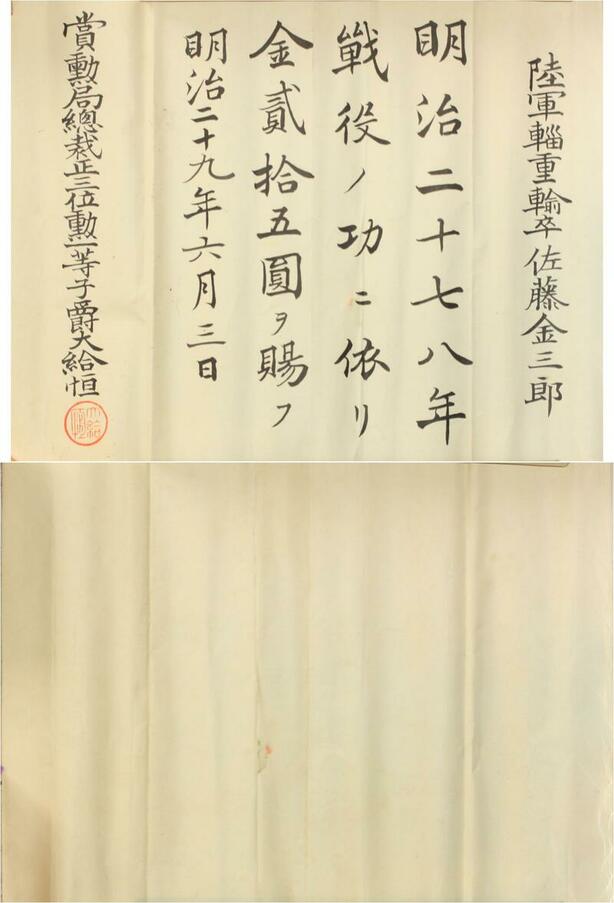 陸軍輜重輸卒佐藤金三郎
明治二十七八年
戰役ノ功ニ依リ
金貳拾五圓ヲ賜フ
明治二十九年六月三日
賞勲局總裁正三位勲一等子爵大給恒